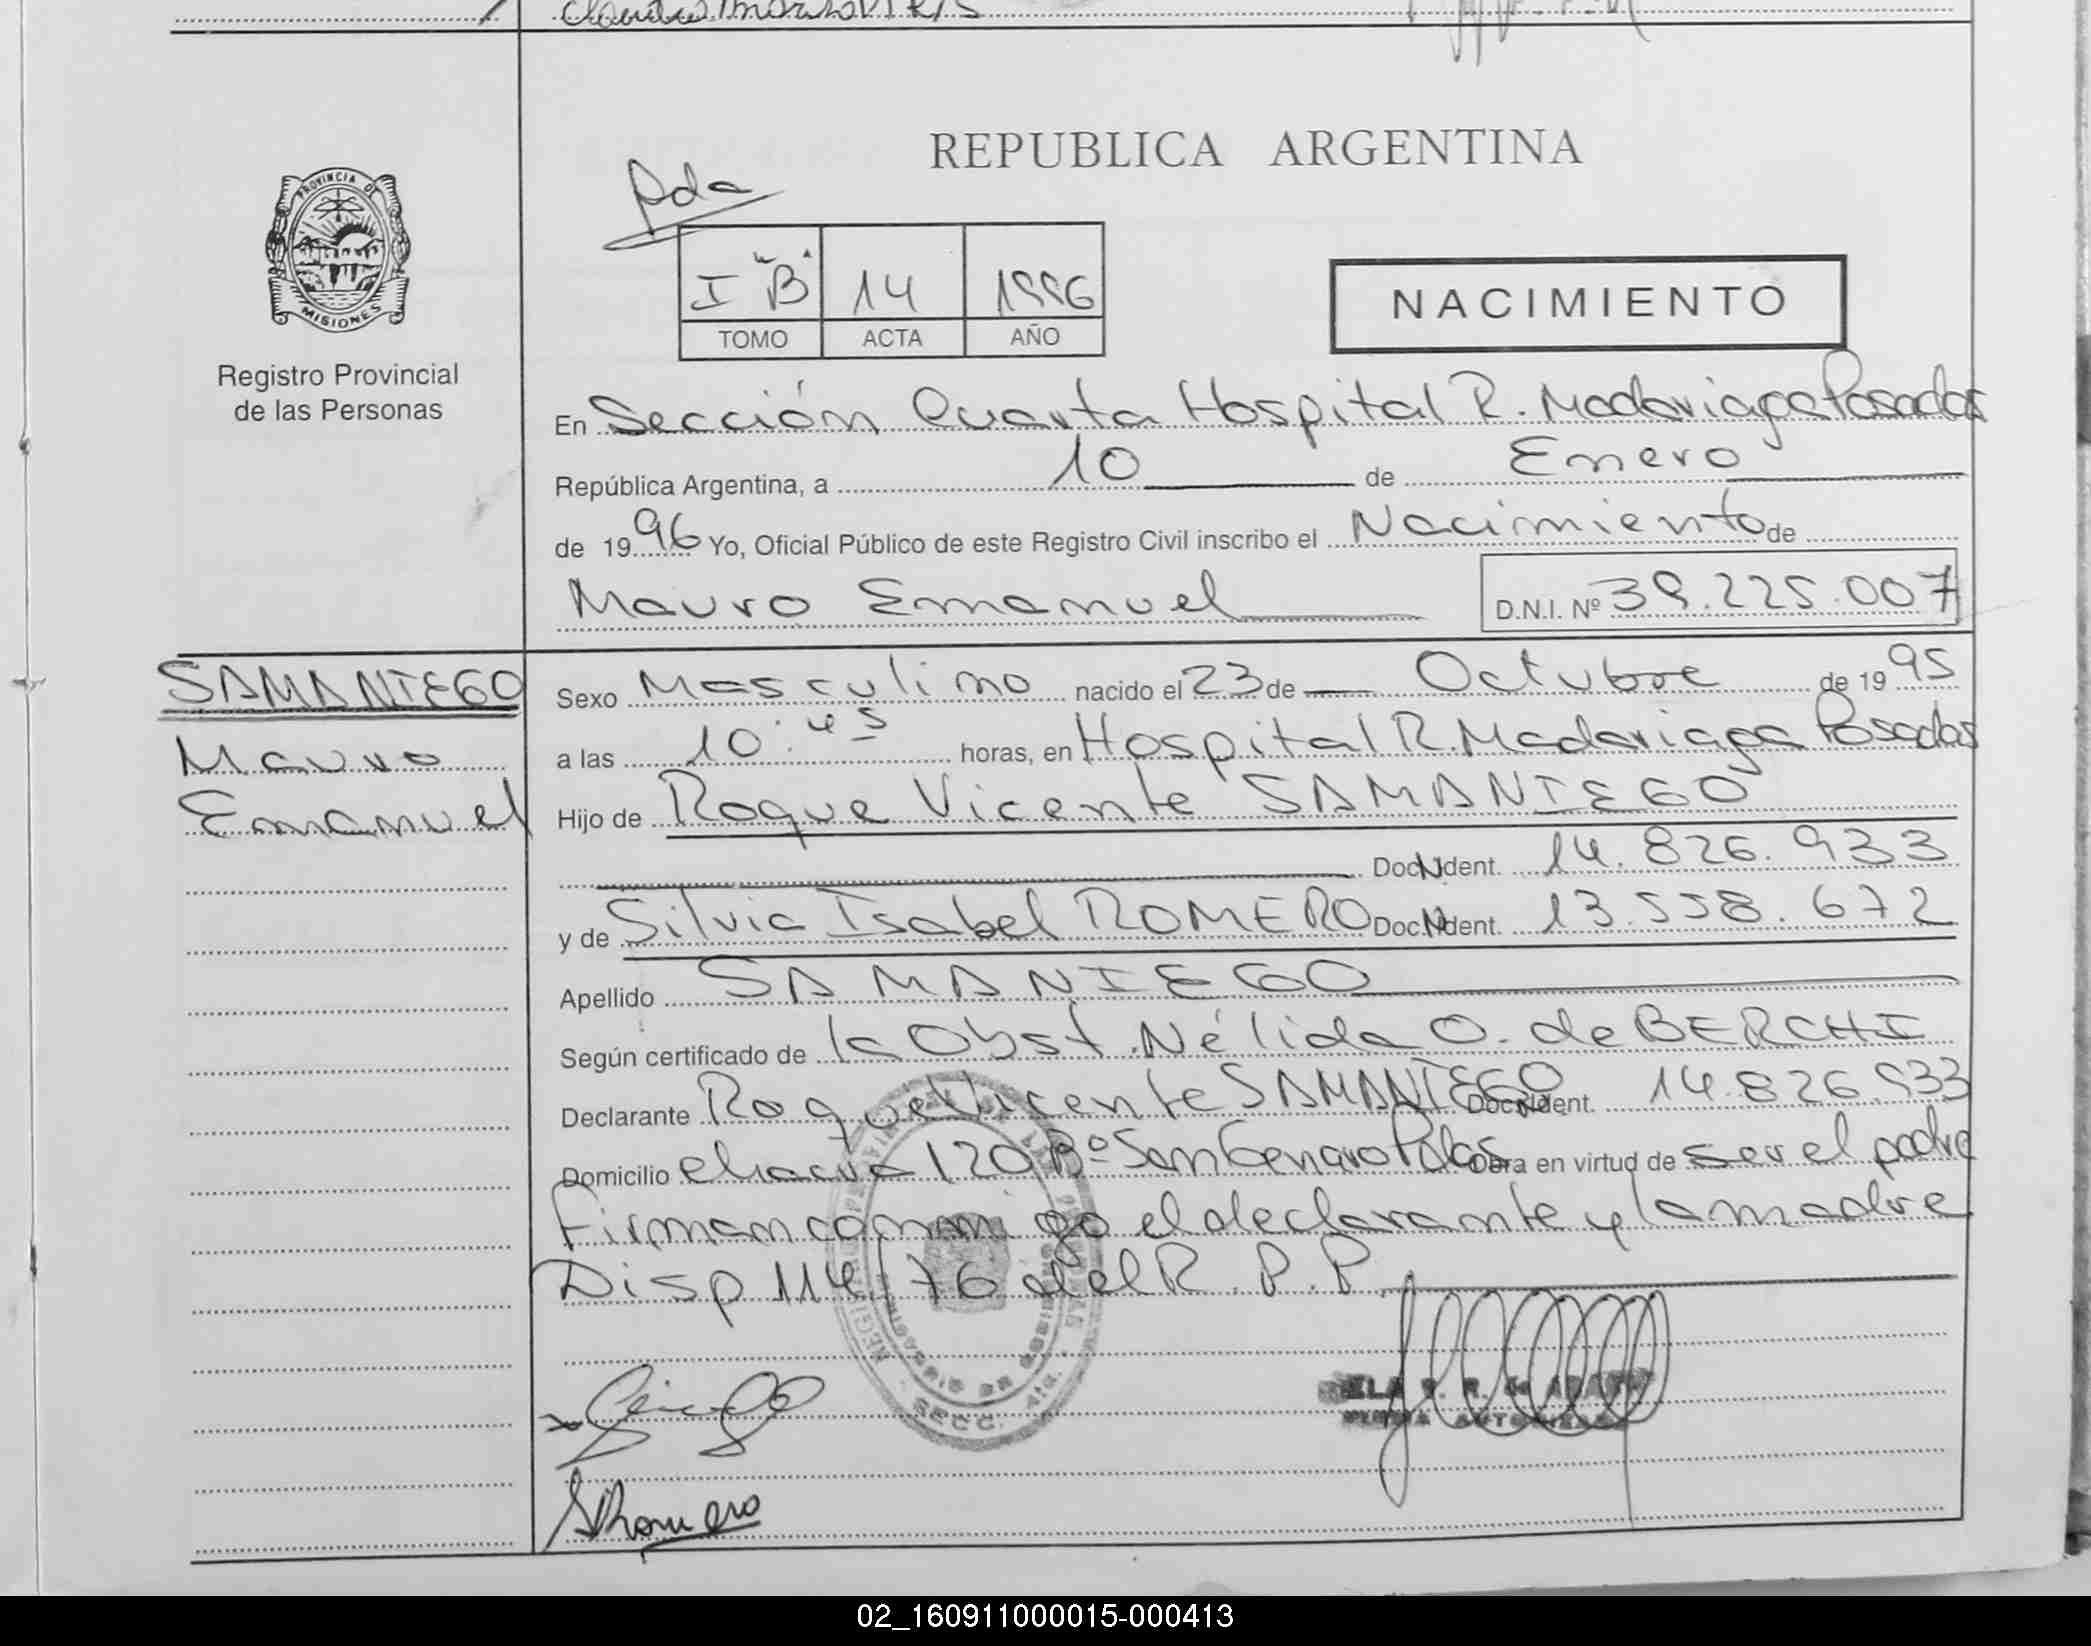 PROVINCIA DE
MISIONES
Registro Provincial
de las Personas
REPUBLICA ARGENTINA
Pda
I "B" 14 1996
TOMO ACTA AÑO
NACIMIENTO
En Sección Cuarta Hospital R. Madariaga Posadas
República Argentina, a 10 de Enero
de 1996 Yo, Oficial Público de este Registro Civil inscribo el Nacimiento de
Mauro Emanuel D.N.I. Nº 39.225.007
SAMANIEGO
Mauro
Emanuel
Sexo Masculino nacido el 23 de Octubre de 1995
a las 10:45 horas, en Hospital R. Madariaga Posadas
Hijo de Roque Vicente SAMANIEGO
Doc. N. Ident. 14.826.933
y de Silvia Isabel ROMERO Doc. N. Ident. 13.558.672
Apellido SAMANIEGO
Según certificado de la Obst. Nélida O. de BERCHI
Declarante Roque Vicente SAMANIEGO Doc. N. Ident. 14.826.933
Domicilio chacra 120 Bº San Genaro Pdas Obra en virtud de ser el padre
Firman conmigo el declarante y la madre
Disp 114/76 del R.P.P.
SECC. 4ta.
SRomero
02_160911000015-000413